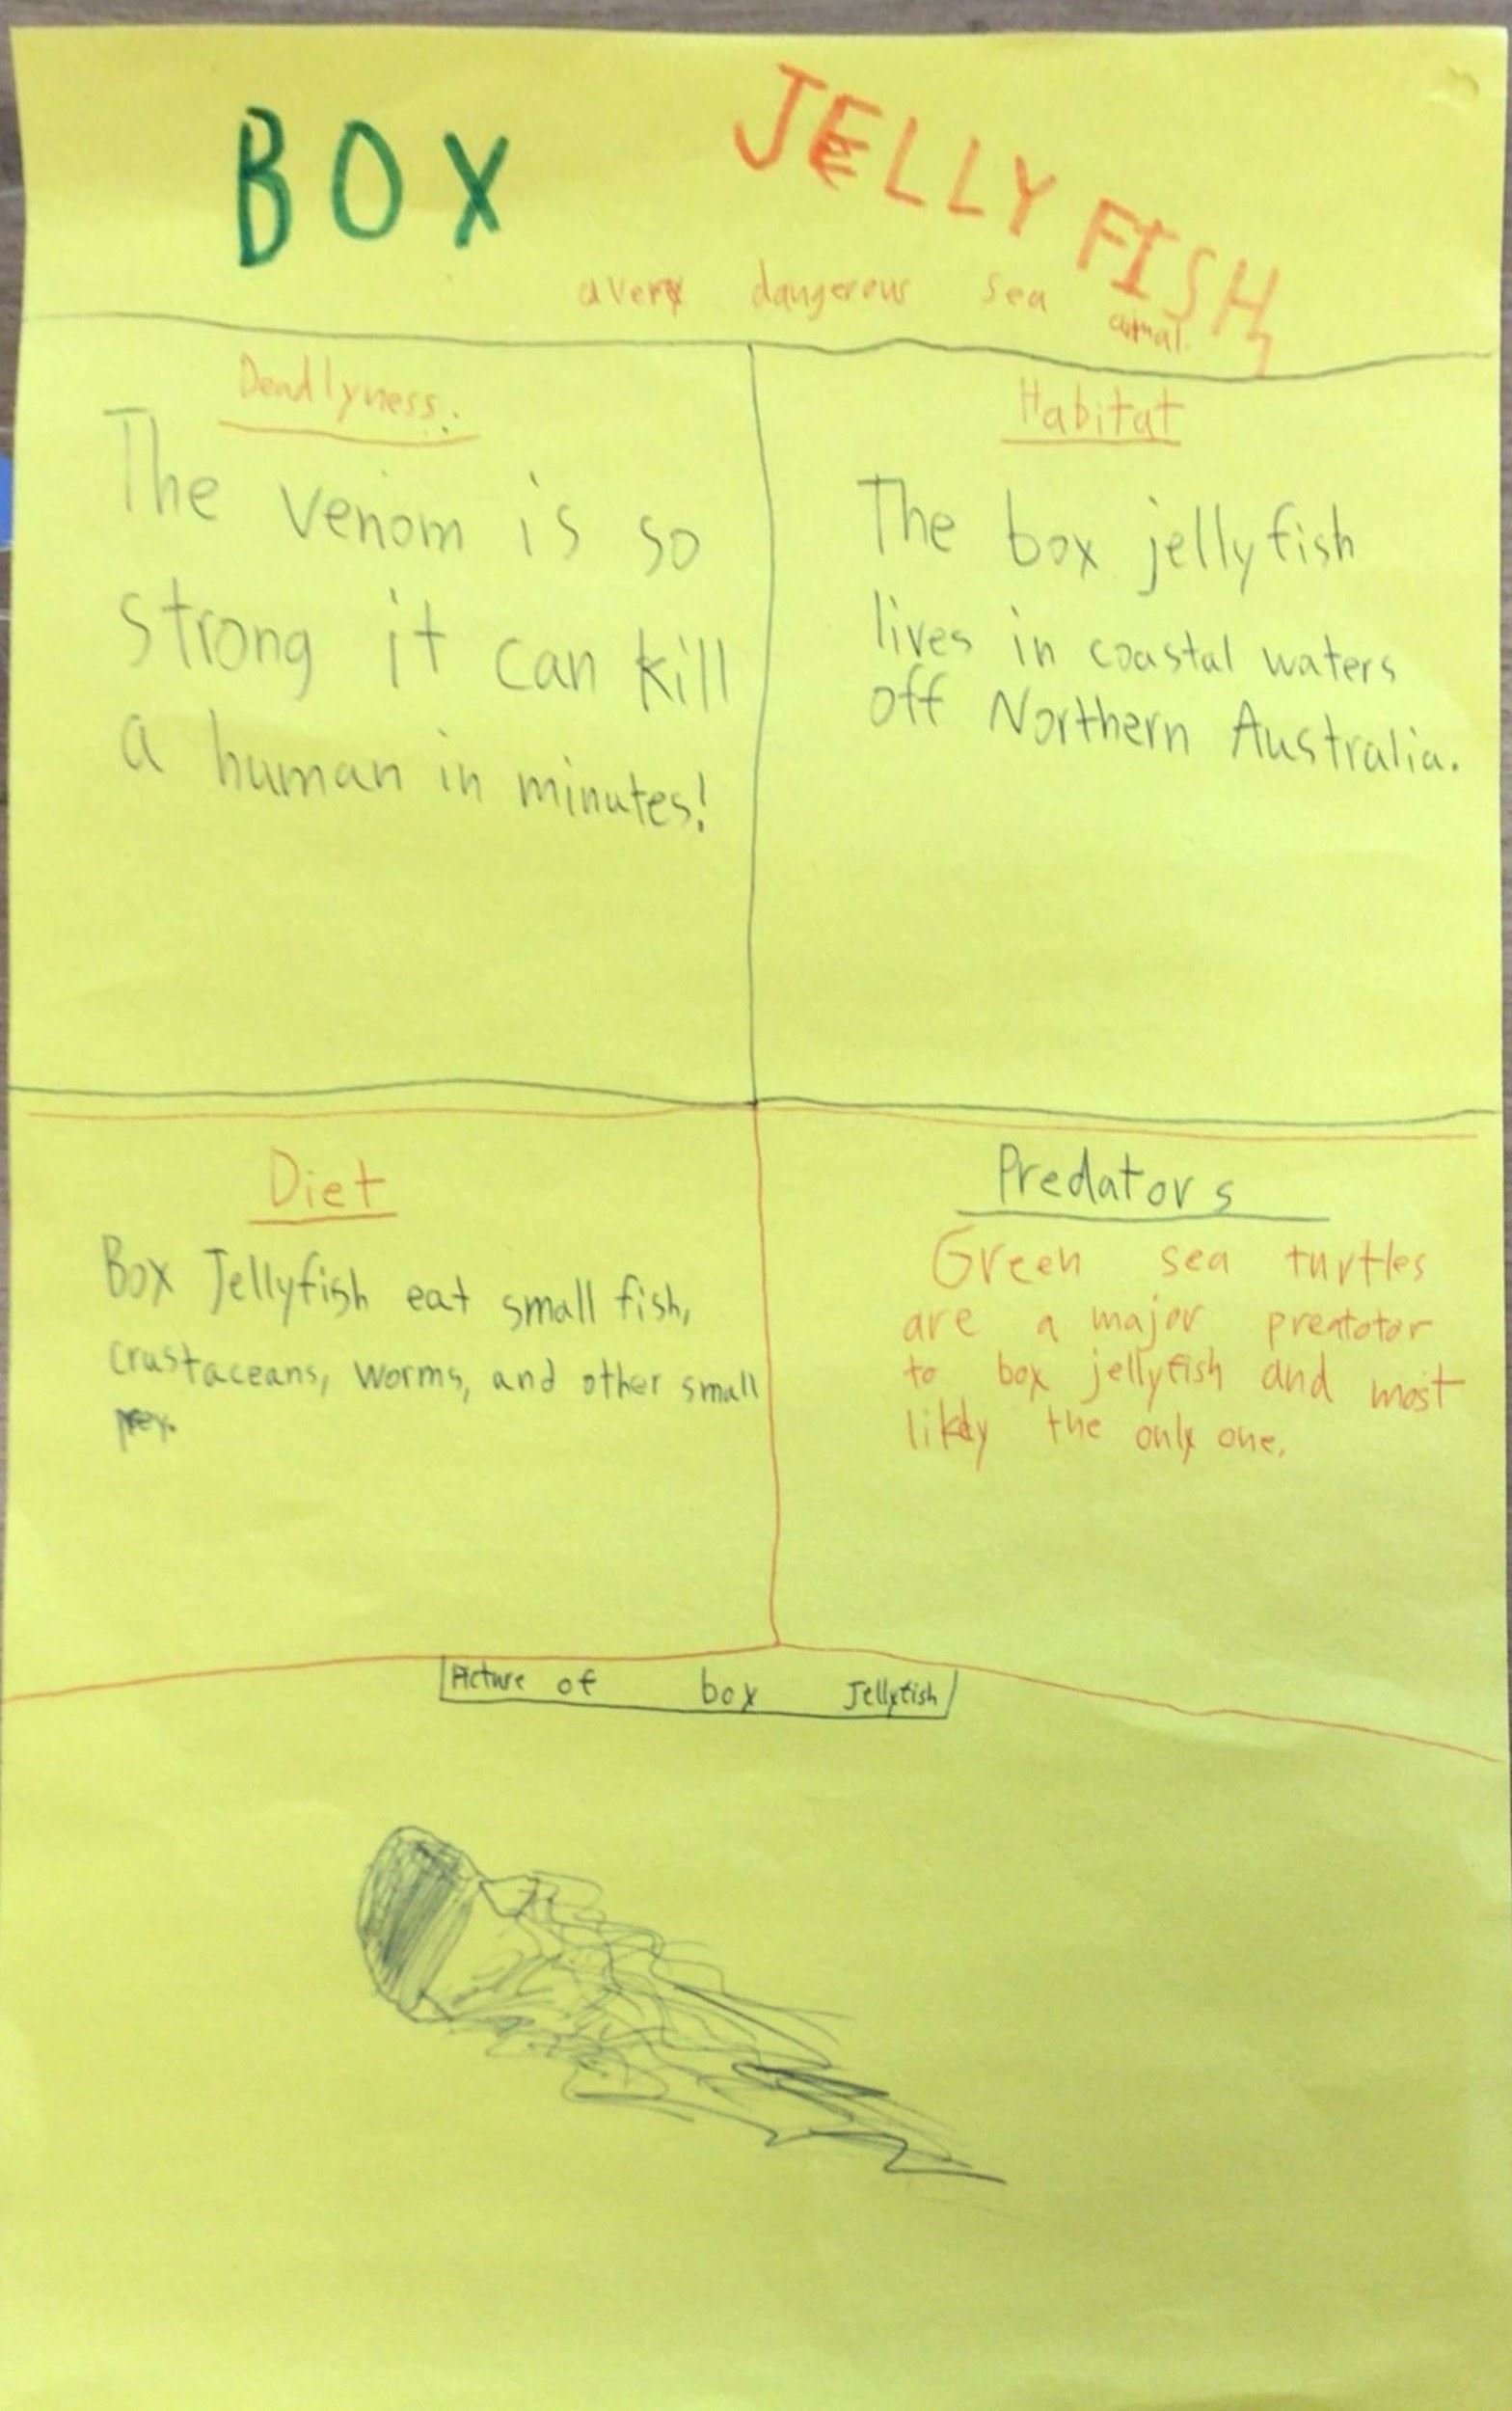 BOX JELLY FISH
a very dangerous sea
Deadlyness:
The venom is so
strong it can kill
a human in minutes!
Habitat
The box jellyfish
lives in coastal waters
off Northern Australia.
Diet
Box Jellyfish eat small fish,
crustaceans, worms, and other small
prey.
Predators
Green sea turtles
are a major preatotor
to box jellyfish and most
likely the only one.
Picture of box Jellyfish